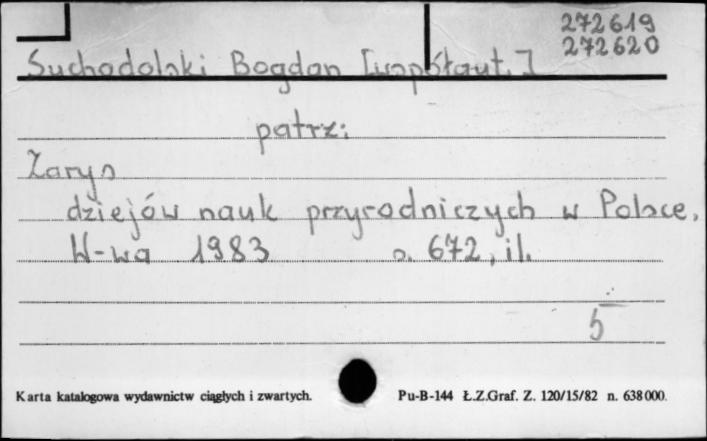 272619
272620
Suchodolski Bogdan [współaut.]
patrz:
Zarys
dziejów nauk przyrodniczych w Polsce.
W-wa 1983 s. 672, il.
5
Karta katalogowa wydawnictw ciągłych i zwartych. Pu-B-144 Ł.Z.Graf. Z. 120/15/82 n. 638000.